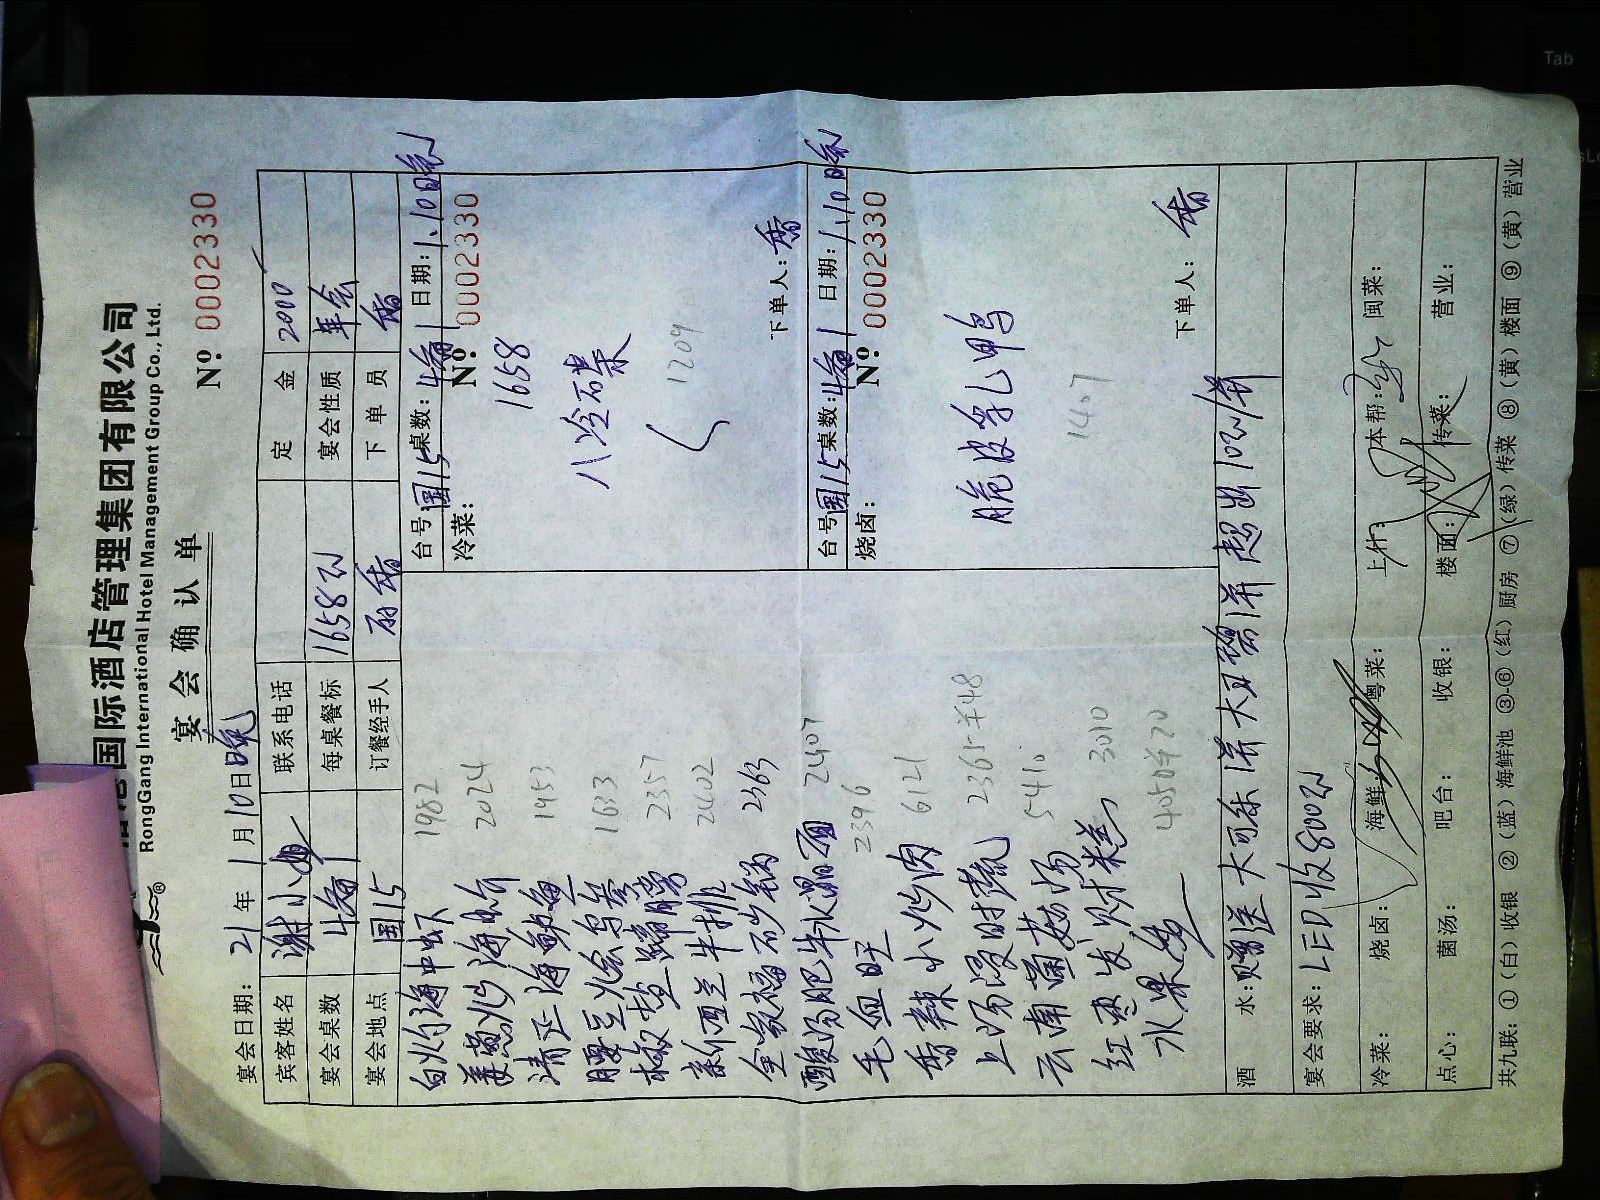 国际酒店管理集团有限公司
RongGang International Hotel Management Group Co., Ltd.
®
宴会确认单
№ 0002330
宴会日期: 21年1月10日晚
宾客姓名 谢小姐 联系电话 定金 2000
宴会桌数 4备1 每桌餐标 1658元 宴会性质 年会
宴会地点 国15 订餐经手人 香 下单员 香
白灼海中虾 1982
姜葱炒海蚧 2024
清正海鲈鱼 1953
腰豆火会乌参 1633
椒盐蹄膀 2357
新西兰牛排 2402
全家福砂锅 2363
酸汤肥牛水晶面 2407
毛血旺 2396
香辣小炒肉 6121
上汤浸时蔬 2365-¥48
云南菌菇汤 5410
红枣发财糕 3010
水果 4050¥20
台号: 国15 桌数: 4备1 日期: 1.10日晚
冷菜: № 0002330
1658
八冷石荣
1209
下单人: 香
台号: 国15 桌数: 4备1 日期: 1.10日晚
烧卤: № 0002330
脆皮乳鸭
1407
下单人: 香
酒水: 赠送大可乐1并大王碧1并超出10元/并
宴会要求: LED收800元
冷菜: 烧卤: 海鲜: 粤菜: 上什: 本帮: 闽菜:
点心: 菌汤: 吧台: 收银: 楼面: 传菜: 营业:
共九联: ①(白)收银 ②(蓝)海鲜池 ③-⑥(红)厨房 ⑦(绿)传菜 ⑧(黄)楼面 ⑨(黄)营业
Tab